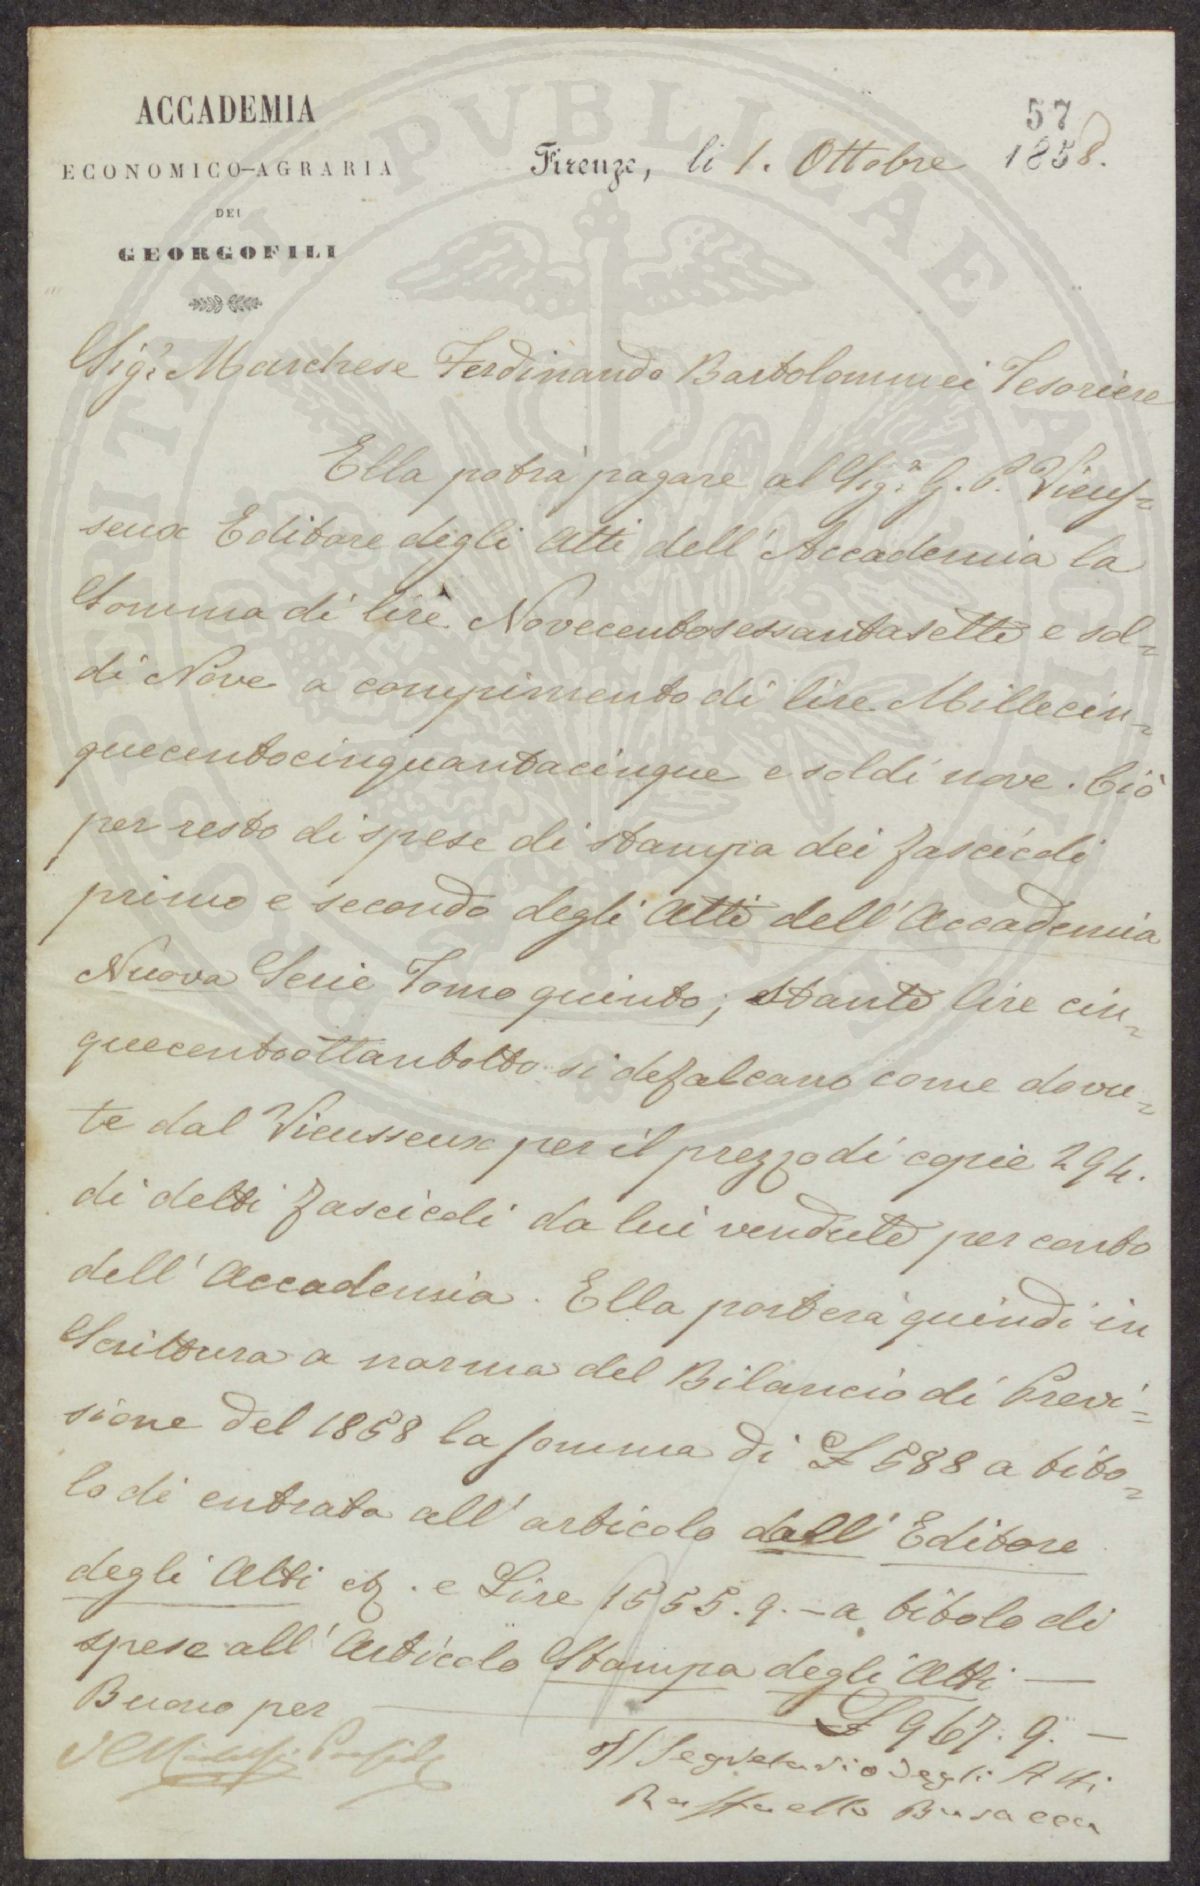 ACCADEMIA
ECONOMICO-AGRARIA
DEI
GEORGOFILI
57
Firenze, li 1. Ottobre 1858.
Sigr. Marchese Ferdinando Bartolommei Tesoriere
Ella potrà pagare al Sigr. G. P. Vieus=
seux Editore degli Atti dell'Accademia la
Somma di lire Novecentosessantasette e sol=
di Nove a compimento di lire Millecin=
quecentocinquantacinque e soldi nove. Ciò
per resto di spese di stampa dei fascicoli
primo e secondo degli Atti dell'Accademia
Nuova Serie Tomo quinto; stante lire cin=
quecentoottantotto si defalcano come dovu=
te dal Vieusseux per il prezzo di copie 294.
di detti fascicoli da lui vendute per conto
dell'Accademia. Ella porterà quindi in
Scrittura a norma del Bilancio di Previ=
sione del 1858 la somma di £ 588 a tito=
lo di entrata all'articolo dall'Editore
degli Atti &. e Lire 1555.9.- a titolo di
spese all'Articolo Stampa degli Atti —
Buono per — £ 967.9. —
Il Segretario degli Atti
Raffaello Busacca
PROSPERITATI PVBLICAE AVGENDAE